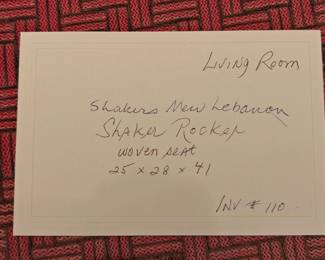 Living Room
Shakers New Lebanon
Shaker Rocker
woven seat
25 x 28 x 41
INV # 110